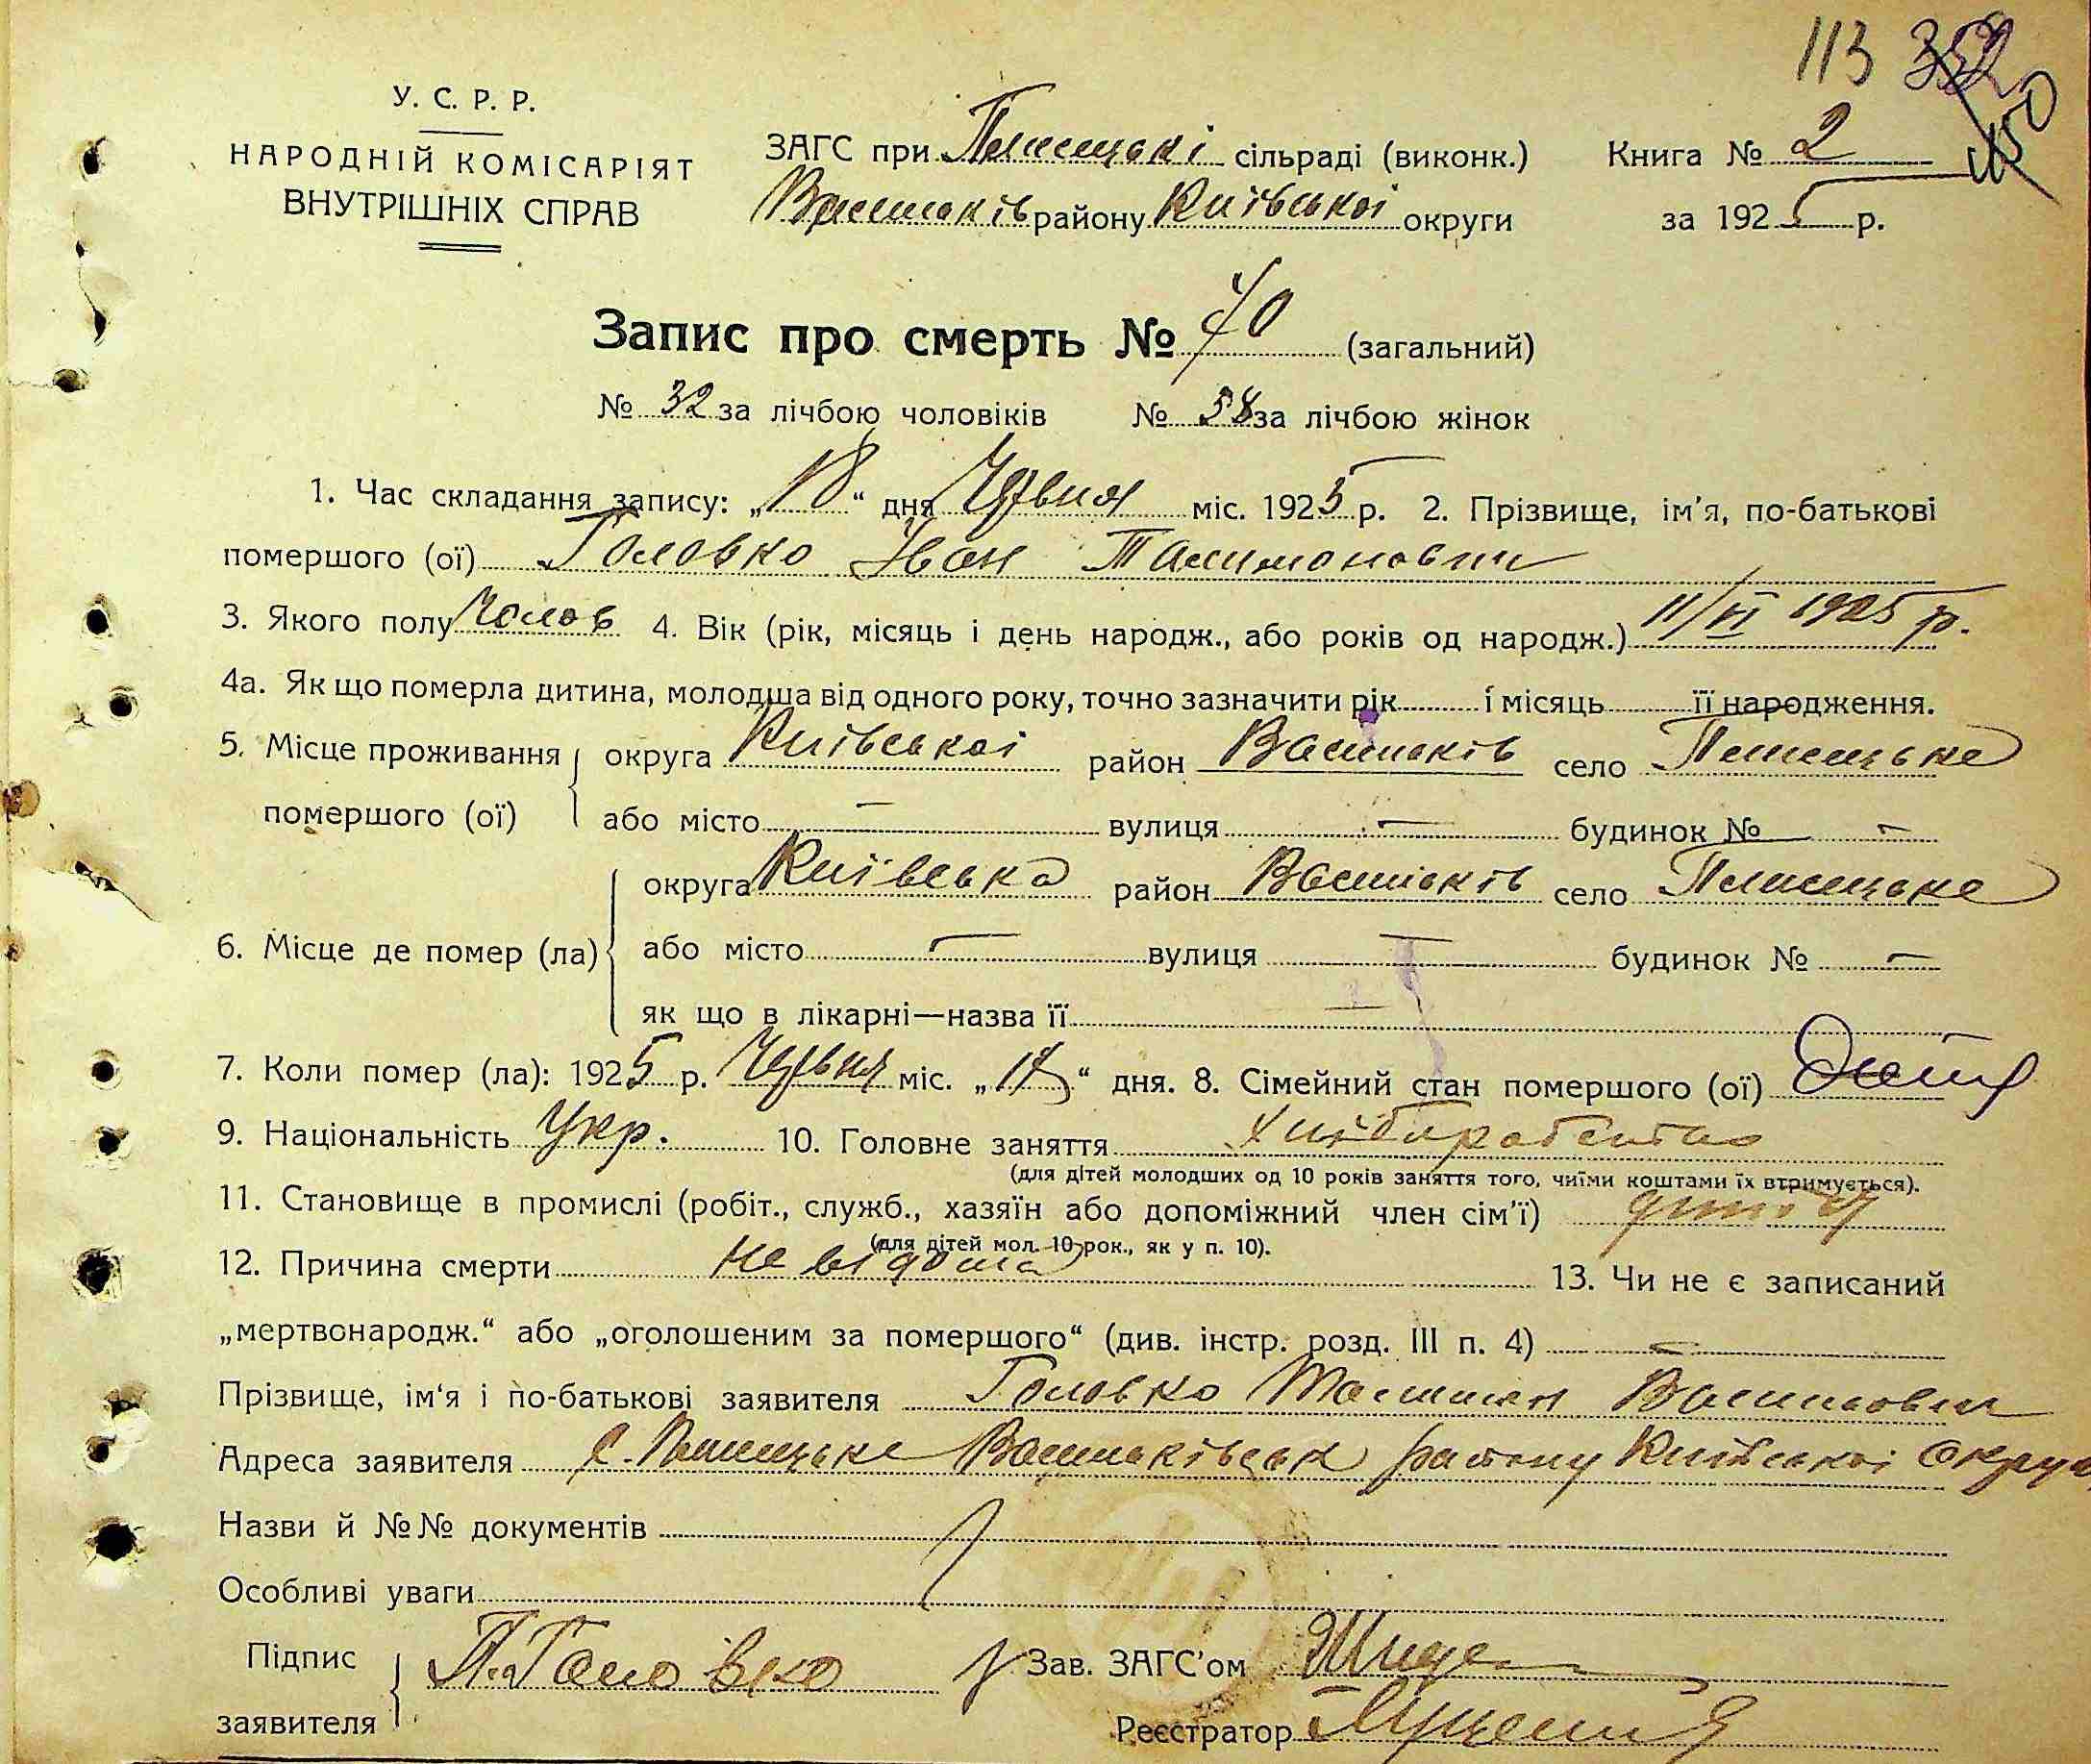 113 352
450
У. С. Р. Р.
НАРОДНІЙ КОМІСАРІЯТ
ВНУТРІШНІХ СПРАВ
ЗАГС при Плисецькі сільраді (виконк.)
Васильків району Київської округи
Книга № 2
за 1925 р.
Запис про смерть № 70 (загальний)
№ 32 за лічбою чоловіків № 38 за лічбою жінок
1. Час складання запису: „18“ дня Червня міс. 1925 р. 2. Прізвище, ім'я, по-батькові
помершого (ої) Головко Іван
3. Якого полу Чолов 4. Вік (рік, місяць і день народж., або років од народж.) 11/VI 1925 р.
4а. Як що померла дитина, молодша від одного року, точно зазначити рік і місяць її народження.
5. Місце проживання округа Київської район Васильків село Плисецьке
помершого (ої) або місто — вулиця — будинок № —
округа Київська район Васильків село Плисецьке
6. Місце де помер (ла) або місто — вулиця — будинок № —
як що в лікарні—назва її —
7. Коли помер (ла): 1925 р. Червня міс. „17“ дня. 8. Сімейний стан помершого (ої)
9. Національність Укр. 10. Головне заняття хліборобство
(для дітей молодших од 10 років заняття того, чиїми коштами їх втримується).
11. Становище в промислі (робіт., служб., хазяїн або допоміжний член сім'ї)
(для дітей мол. 10 рок., як у п. 10).
12. Причина смерти не відома 13. Чи не є записаний
„мертвонародж.“ або „оголошеним за помершого“ (див. інстр. розд. III п. 4) —
Прізвище, ім'я і по-батькові заявителя Головко Васильович
Адреса заявителя с. Плисецьке Васильківськ району Київської округи
Назви й №№ документів
Особливі уваги
Підпис
заявителя
П. Головко
Зав. ЗАГС'ом
Реєстратор